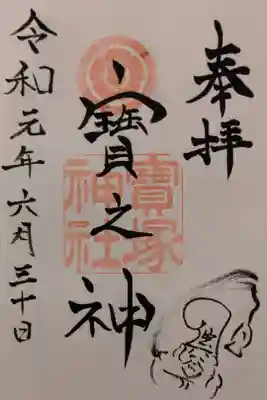 奉拝
寶之神
寶塚
神社
令和元年六月三十日